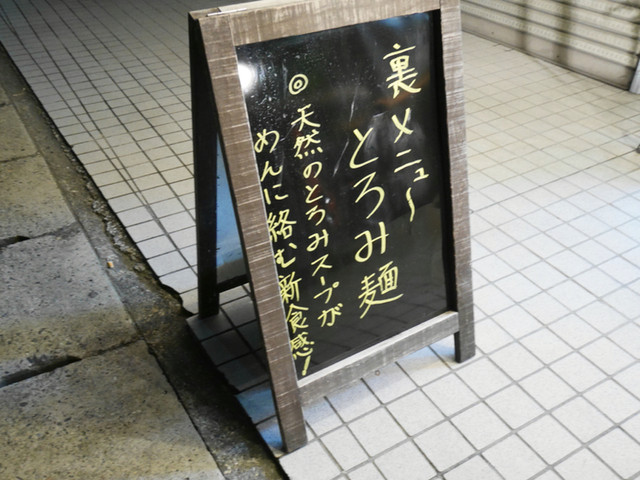 裏メニュー
とろみ麺
◎天然のとろみスープが
めんに絡む新食感!